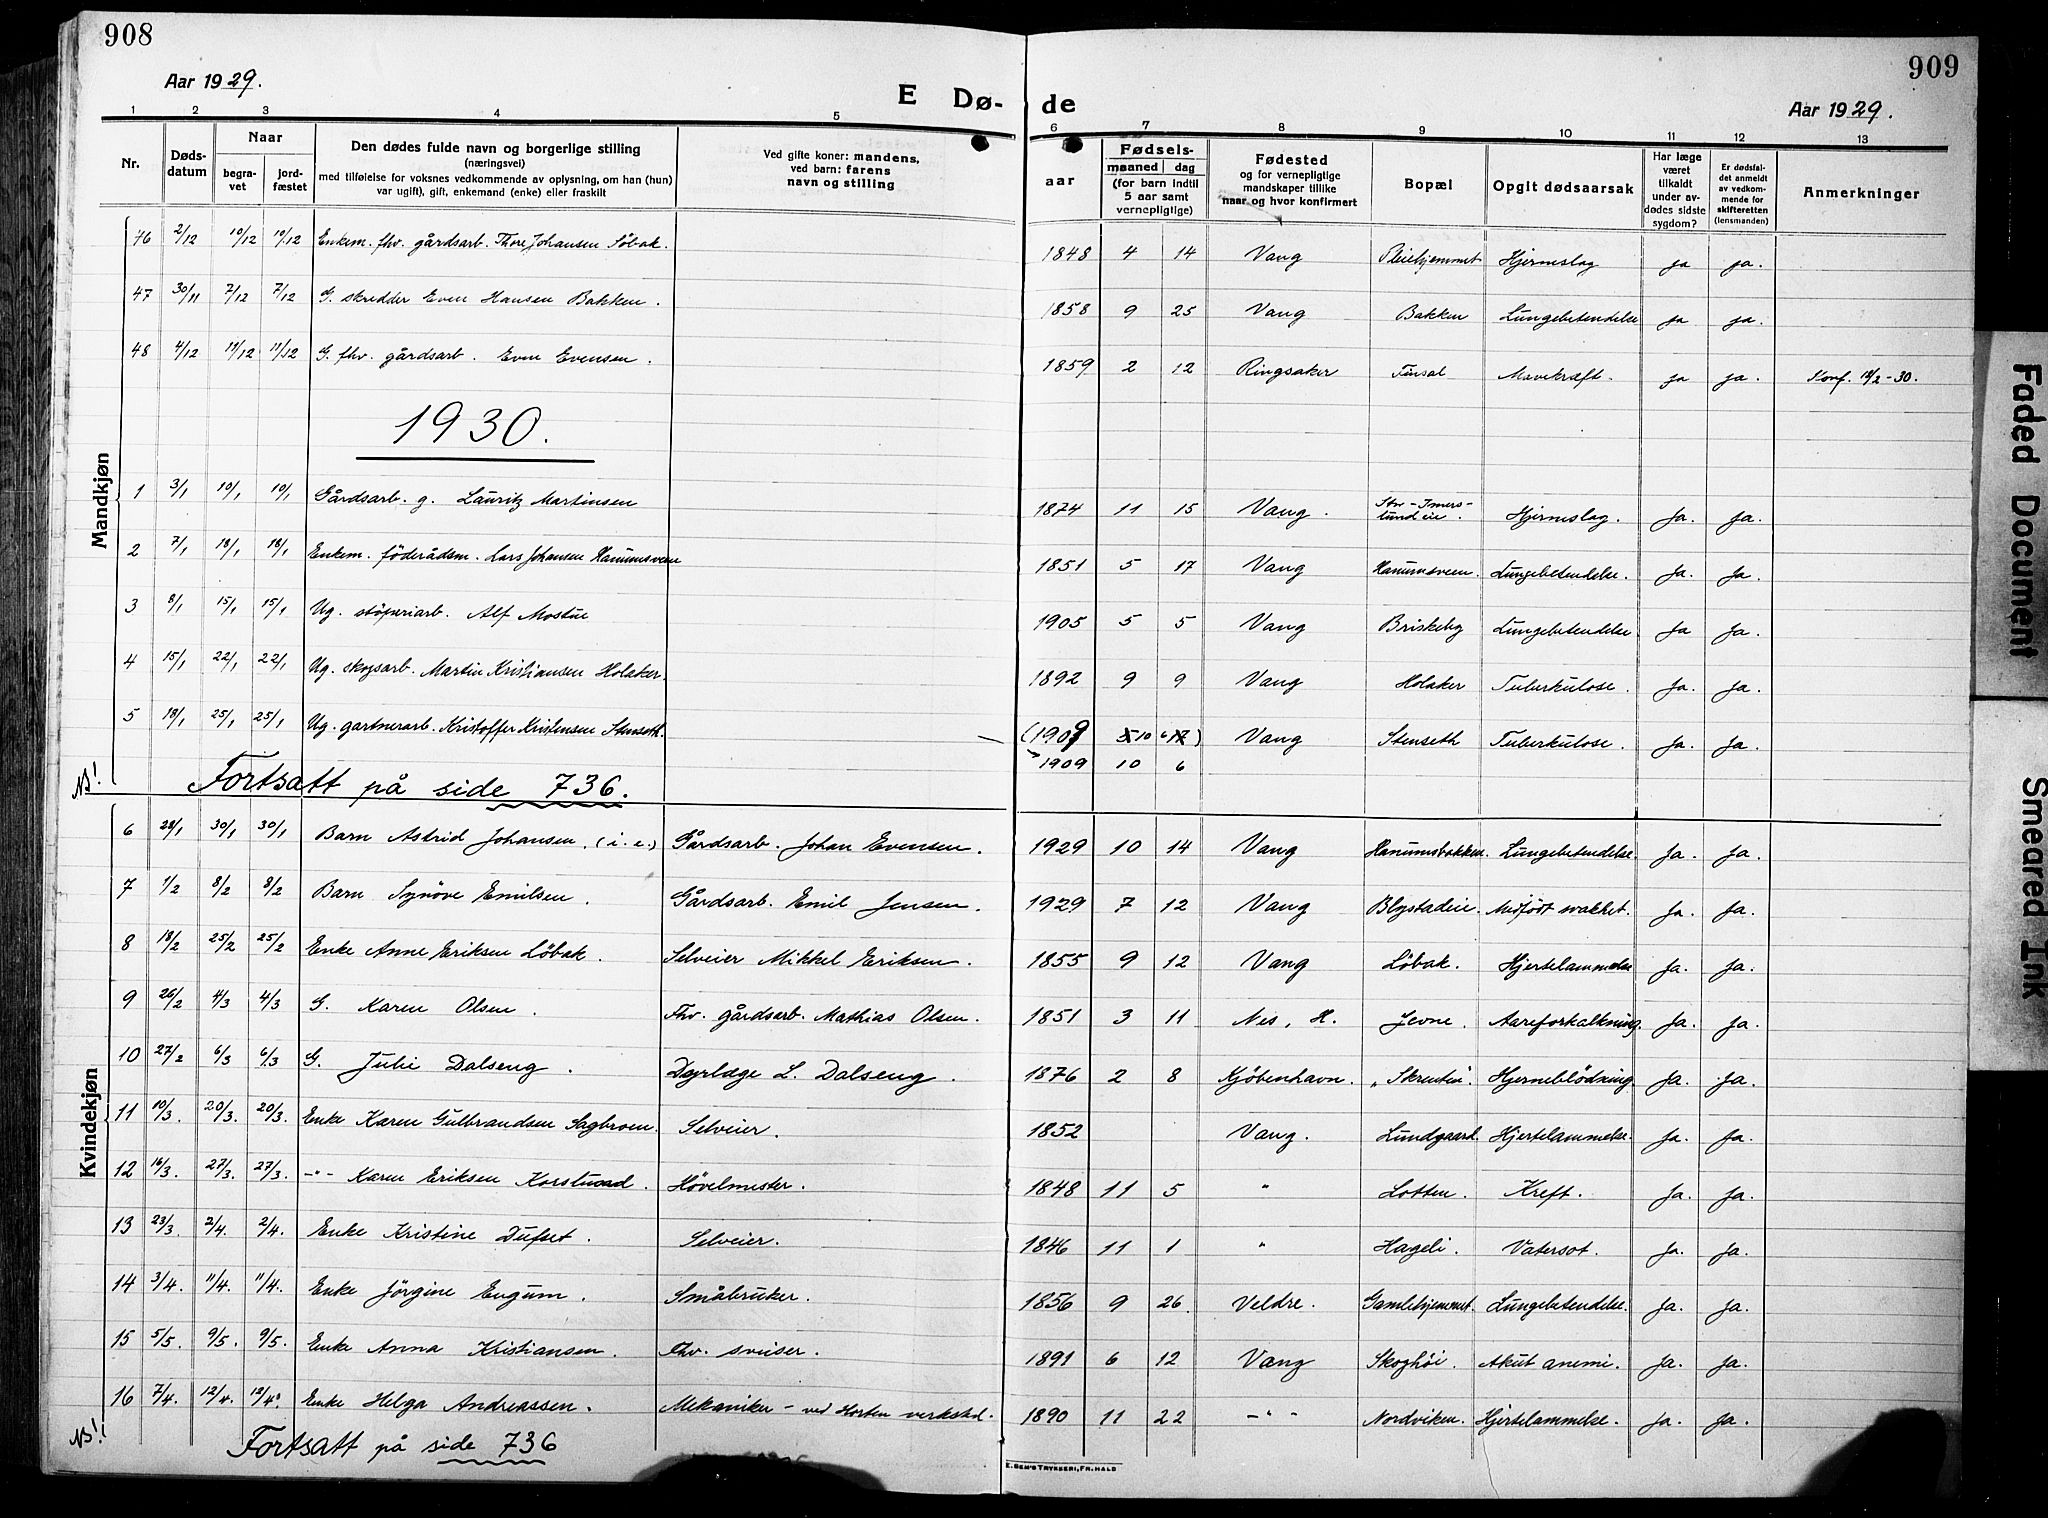 908
909
Aar 1929.
E Dø-de
Aar 1929.
1 2 3 4 5 6 7 8 9 10 11 12 13
Nr.
Døds-datum
Naar
begra-vet
jord-fæstet
Den dødes fulde navn og borgerlige stilling
(næringsvei)
med tilføielse for voksnes vedkommende av oplysning, om han (hun)
var ugift), gift, enkemand (enke) eller fraskilt
Ved gifte koner: mandens,
ved barn: farens
navn og stilling
Fødsels-
aar
maaned dag
(for barn indtil
5 aar samt
vernepligtige)
Fødested
og for vernepligtige
mandskaper tillike
naar og hvor konfirmert
Bopæl
Opgit dødsaarsak
Har læge
været
tilkaldt
under av-
dødes sidste
sygdom?
Er dødsfal-
det anmeldt
av vedkom-
mende for
skifteretten
(lensmanden)
Anmerkninger
Mandkjøn
46 2/12 10/12 10/12 Enkem. fhv. gårdsarb. Thore Johansen Löbak. 1848 4 14 Vang Pleiehjemmet Hjerneslag ja ja.
47 30/11 7/12 7/12 G. skredder Even Hansen Bakken. 1858 9 25 Vang Bakken Lungebetendelse ja ja.
48 4/12 11/12 11/12 G. fhv. gårdsarb. Even Evensen. 1859 2 12 Ringsaker Finsal Mavekræft. ja ja. Konf. 12/2-30.
1930.
1 3/1 10/1 10/1 Gårdsarb. g. Lauritz Martinsen 1874 11 15 Vang. Stor-Imers-lundeie. Hjerneslag. Ja. Ja.
2 7/1 18/1 18/1 Enkem. föderådsm. Lars Johansen Hanumsveen 1851 5 17 Vang Hanumsveen. Lungebetendelse. Ja. Ja.
3 8/1 15/1 15/1 Ug. stöperiarb. Alf Mostue 1905 5 5 Vang Briskeby Lungebetendelse. Ja Ja.
4 15/1 22/1 22/1 Ug. skogsarb. Martin Kristiansen Holaker. 1892 9 9 Vang Holaker Tuberkulose. Ja. Ja.
5 18/1 25/1 25/1 Ug. gartnerarb. Kristoffer Kristensen Stenseth. (1909 10 6) Vang Stenseth Tuberkulose. Ja. Ja.
1909 10 6
NB! Fortsatt på side 736.
Kvindekjøn
6 28/1 30/1 30/1 Barn Astrid Johansen. (i. e.) Gårdsarb. Johan Evensen. 1929 10 14 Vang Hanumsbakken. Lungebetendelse. Ja. Ja.
7 1/2 8/2 8/2 Barn Synöve Emilsen. Gårdsarb. Emil Jensen. 1929 7 12 Vang Blystadeie. Medfödt svakhet. Ja. Ja.
8 18/2 25/2 25/2 Enke Anne Eriksen Löbak. Selveier Mikkel Eriksen. 1855 9 12 Vang Löbak. Hjertelammelse Ja. Ja.
9 26/2 4/3 4/3 G. Karen Olsen. Fhv. gårdsarb. Mathias Olsen. 1851 3 11 Nes, H. Jevne. Aareforkalkning. Ja. Ja.
10 27/2 6/3 6/3 G. Julie Dalseng. Dyrlæge L. Dalseng. 1876 2 8 Kjöbenhavn. "Skrenten". Hjerneblödning Ja. Ja.
11 10/3. 20/3. 20/3. Enke Karen Gulbrandsen Sagbroen. Selveier. 1852 Vang. Lundgaard. Hjertelammelse. Ja. Ja.
12 16/3. 27/3. 27/3. -"- Karen Eriksen Korstuad. Hövelmester. 1848 11 5 " Lotten. Kreft. Ja. Ja.
13 23/3. 2/4. 2/4. Enke Kristine Dufset. Selveier. 1846 11 1 " Hageli. Vatersot. Ja. Ja.
14 3/4. 11/4. 11/4. Enke Jörgine Engum. Småbruker. 1856 9 26. Veldre. Gamlehjemmet. Lungebetendelse. Ja. Ja.
15 5/5. 9/5. 9/5. Enke Anna Kristiansen. Fhv. sveiser. 1891 6 12 Vang Skoghöi. Akut anemi. Ja. Ja.
16 7/4. 12/4. 12/4. Enke Helga Andreassen. Mekaniker - ved Horten verksted. 1890 11 22 -"- Nordviken. Hjertelammelse. Ja. Ja.
NB!! Fortsatt på side 736
E. SEM'S TRYKKERI, FR.HALD
Faded Document
Smeared Ink